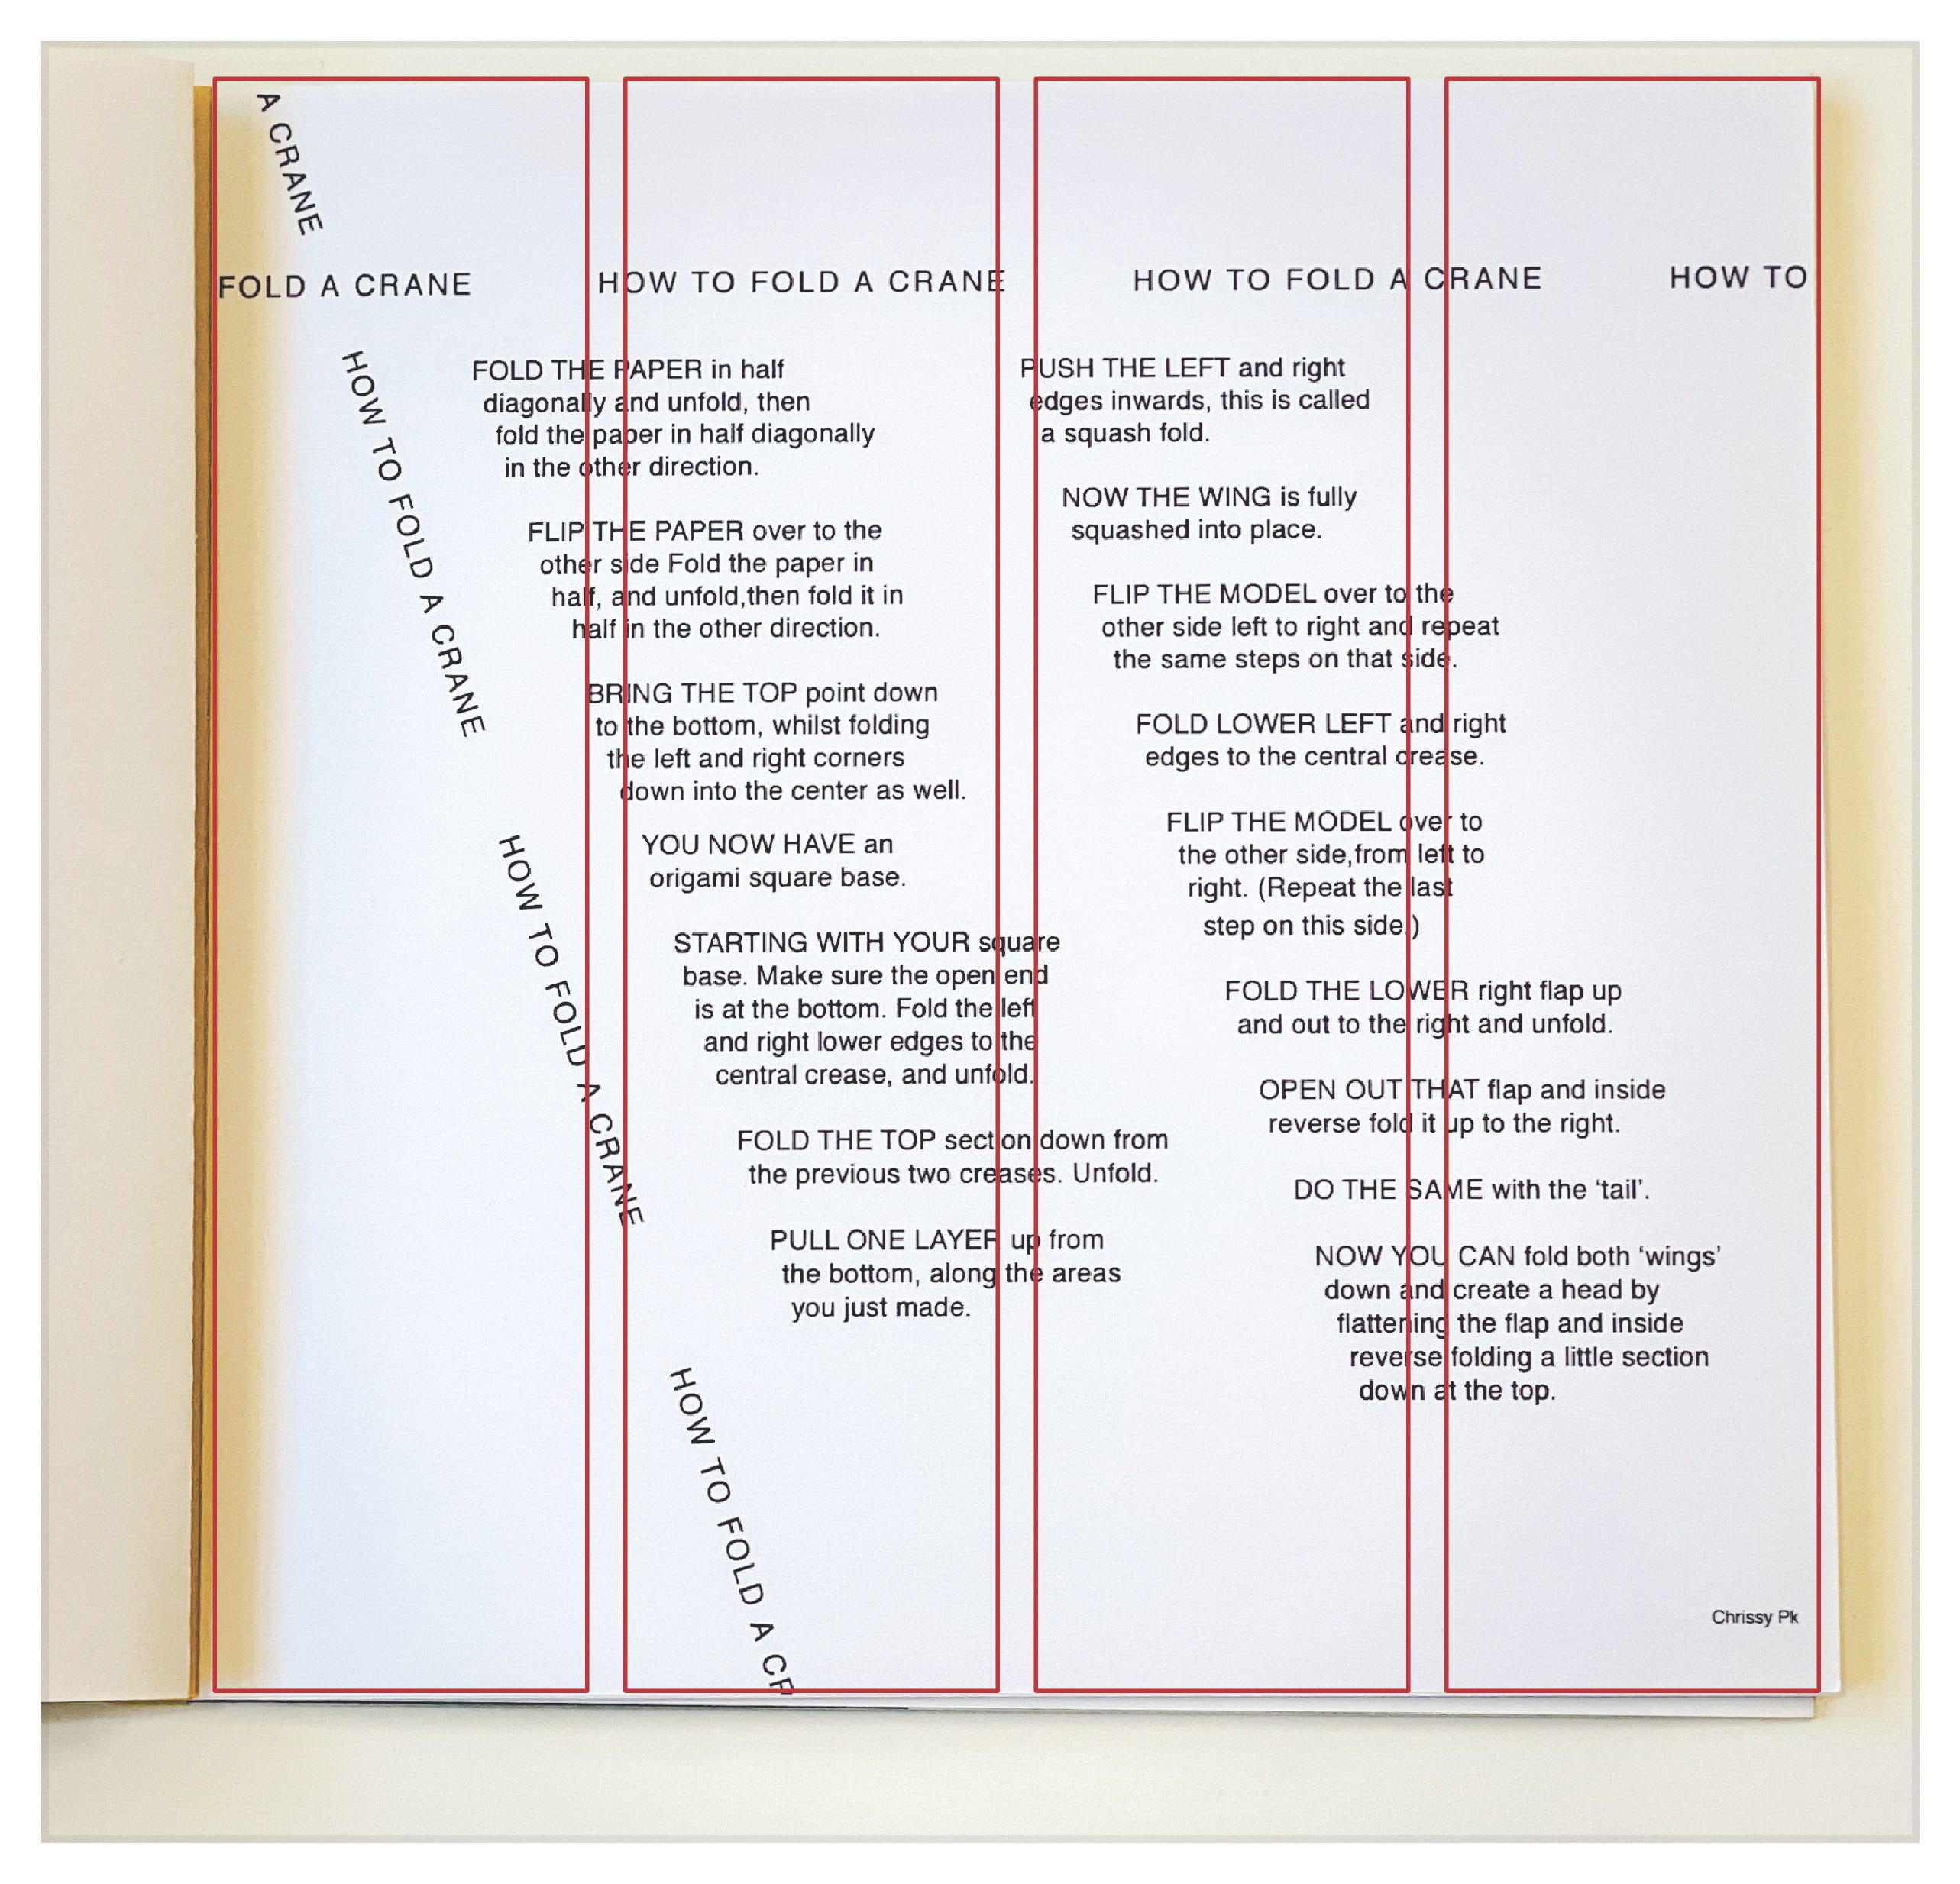 A CRANE
FOLD A CRANE HOW TO FOLD A CRANE HOW TO FOLD A CRANE HOW TO
HOW TO FOLD A CRANE
HOW TO FOLD A CRANE
HOW TO FOLD A CR
FOLD THE PAPER in half
diagonally and unfold, then
fold the paper in half diagonally
in the other direction.
FLIP THE PAPER over to the
other side Fold the paper in
half, and unfold,then fold it in
half in the other direction.
BRING THE TOP point down
to the bottom, whilst folding
the left and right corners
down into the center as well.
YOU NOW HAVE an
origami square base.
STARTING WITH YOUR square
base. Make sure the open end
is at the bottom. Fold the left
and right lower edges to the
central crease, and unfold.
FOLD THE TOP section down from
the previous two creases. Unfold.
PULL ONE LAYER up from
the bottom, along the areas
you just made.
PUSH THE LEFT and right
edges inwards, this is called
a squash fold.
NOW THE WING is fully
squashed into place.
FLIP THE MODEL over to the
other side left to right and repeat
the same steps on that side.
FOLD LOWER LEFT and right
edges to the central crease.
FLIP THE MODEL over to
the other side,from left to
right. (Repeat the last
step on this side.)
FOLD THE LOWER right flap up
and out to the right and unfold.
OPEN OUT THAT flap and inside
reverse fold it up to the right.
DO THE SAME with the ‘tail’.
NOW YOU CAN fold both ‘wings’
down and create a head by
flattening the flap and inside
reverse folding a little section
down at the top.
Chrissy Pk